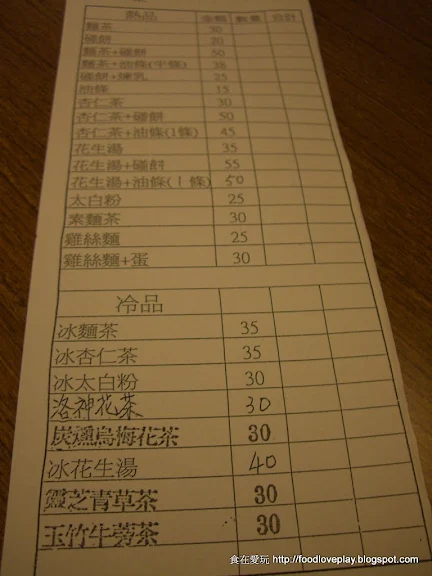 熱品 金額 數量 合計
麵茶 30
碰餅 20
麵茶+碰餅 50
麵茶+油條(半條) 38
碰餅+煉乳 25
油條 15
杏仁茶 30
杏仁茶+碰餅 50
杏仁茶+油條(1條) 45
花生湯 35
花生湯+碰餅 55
花生湯+油條(1條) 50
太白粉 25
素麵茶 30
雞絲麵 25
雞絲麵+蛋 30
冷品
冰麵茶 35
冰杏仁茶 35
冰太白粉 30
洛神花茶 30
炭燻烏梅花茶 30
冰花生湯 40
靈芝青草茶 30
玉竹牛蒡茶 30
食在愛玩 http://foodloveplay.blogspot.com